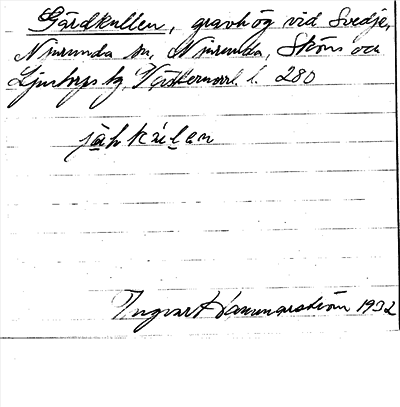 Gårdkullen, gravhög vid Svedje,
Njurunda sn, Njurunda, Sköns och
Ljustorps tg, Västernorrl. l. 280
Ingvar Hammarström 1932